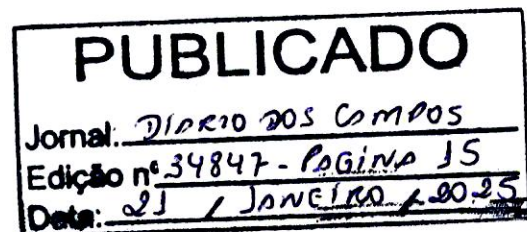 PUBLICADO
Jornal: DIARIO DOS CAMPOS
Edição nº 34847 - PAGINA 15
Data: 21 / JANEIRO / 2025